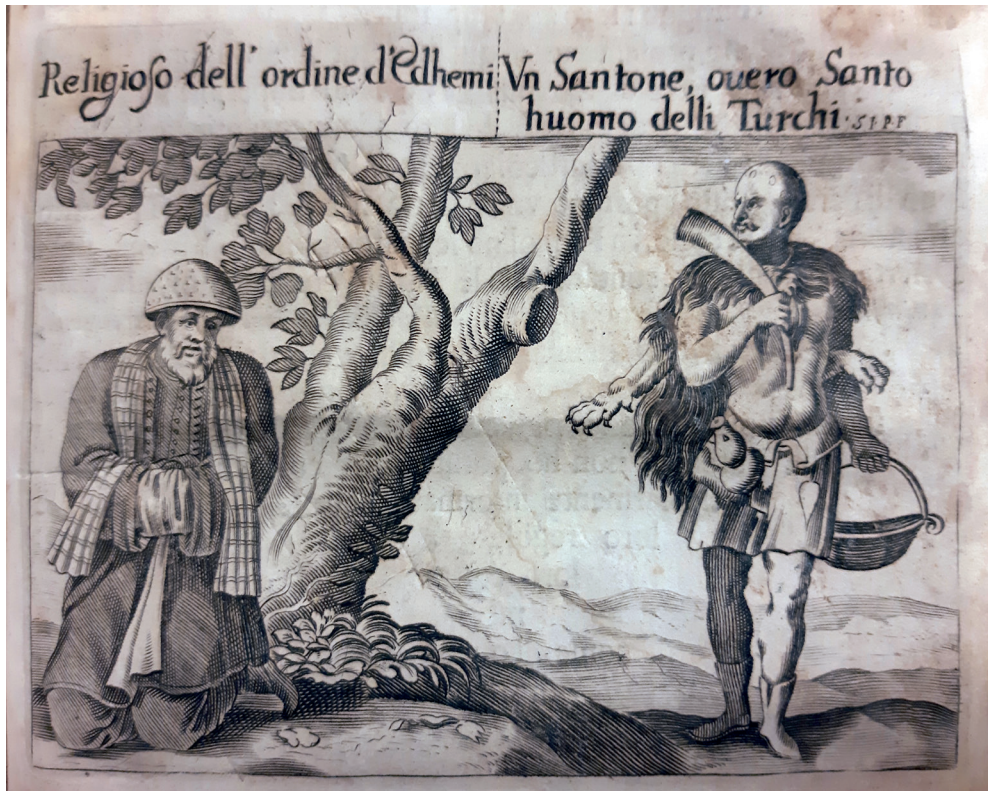 Religioso dell' ordine d'Edhemi
Vn Santone, ouero Santo
huomo delli Turchi.